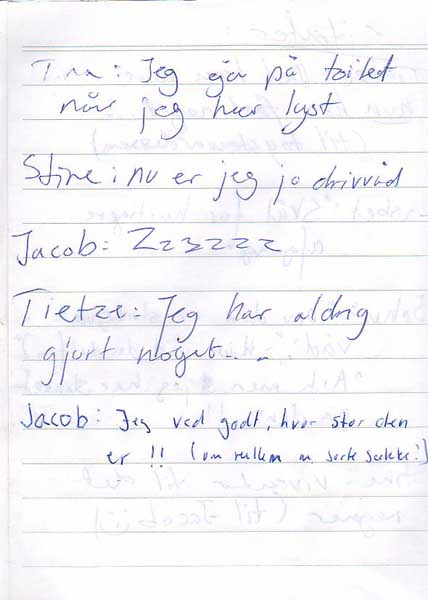 Tina: Jeg går på toilet
når jeg har lyst
Stine: nu er jeg jo drivvåd
Jacob: Zzzzzzz
Tietze: Jeg har aldrig
gjort noget...
Jacob: Jeg ved godt, hvor stor den
er !! (om m. sorte !)